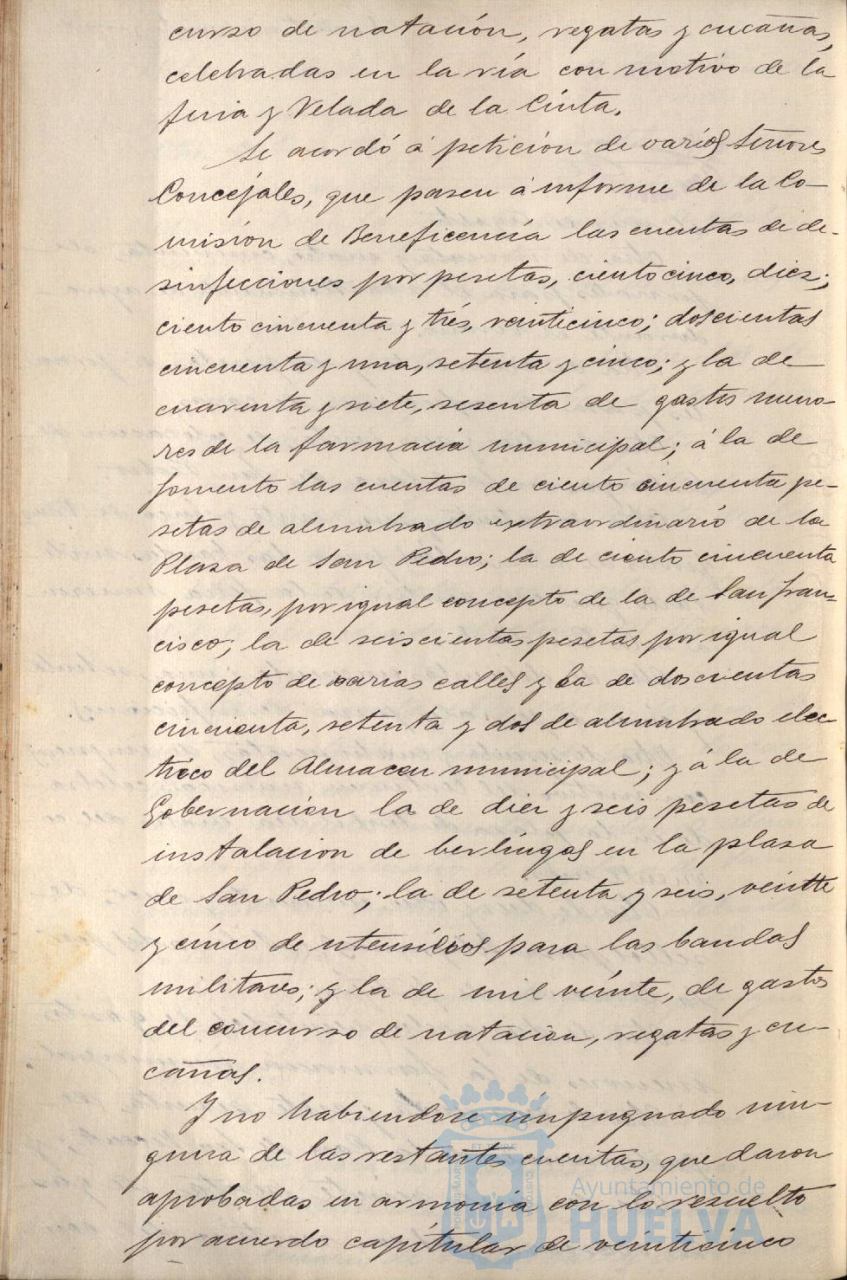 curso de natación, regatas y cucañas,
celebradas en la ría con motivo de la
feria y Velada de la Cinta.
Se acordó á petición de varios Señores
Concejales, que pasen á informe de la Co-
misión de Beneficencia las cuentas de de-
sinfecciones por pesetas, ciento cinco, diez;
ciento cincuenta y tres, veinticinco; doscientas
cincuenta y una, setenta y cinco; y la de
cuarenta y siete, sesenta de gastos meno-
res de la farmacia municipal; á la de
fomento las cuentas de ciento cincuenta pe-
setas de alumbrado extraordinario de la
Plaza de San Pedro; la de ciento cincuenta
pesetas, por igual concepto de la de San Fran-
cisco; la de seiscientas pesetas por igual
concepto de varias calles y la de doscientas
cincuenta, setenta y dos de alumbrado elec
trico del Almacen municipal; y á la de
Gobernacion la de diez y seis pesetas de
instalacion de berlingas en la plaza
de San Pedro; la de setenta y seis, veinte
y cinco de utensilios para las bandas
militares; y la de mil veinte, de gastos
del concurso de natacion, regatas y cu-
cañas.
Y no habiendose impugnado nin-
guna de las restantes cuentas, quedaron
aprobadas en armonia con lo resuelto
por acuerdo capitular de veinticinco
Ayuntamiento de
HUELVA